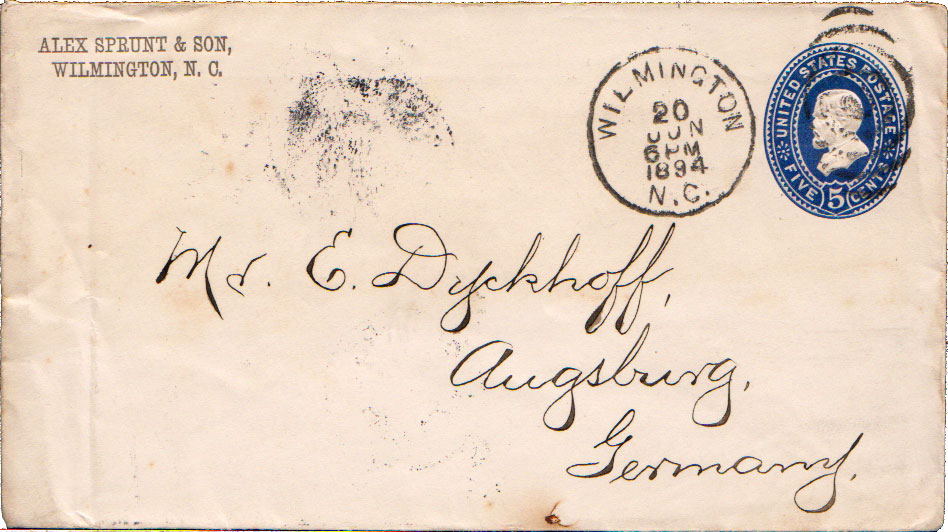 ALEX SPRUNT & SON,
WILMINGTON, N. C.
WILMINGTON
20
JUN
6 PM
1894
N.C.
UNITED STATES POSTAGE
FIVE 5 CENTS
Mr. E. Dyckhoff,
Augsburg,
Germany.